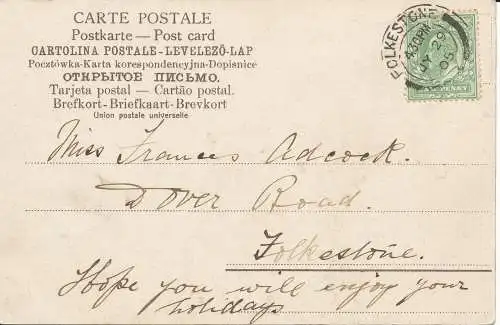 CARTE POSTALE
Postkarte — Post card
CARTOLINA POSTALE-LEVELEZŐ-LAP
Pocztówka-Karta korespondencyjna-Dopisnice
ОТКРЫТОЕ ПИСЬМО.
Tarjeta postal — Cartão postal.
Brefkort-Briefkaart-Brevkort
Union postale universelle
FOLKESTONE
4.30PM
JY 29
05
PENNY
Miss Frances Adcock.
Dover Road.
Folkestone.
Hope you will enjoy your
holidays